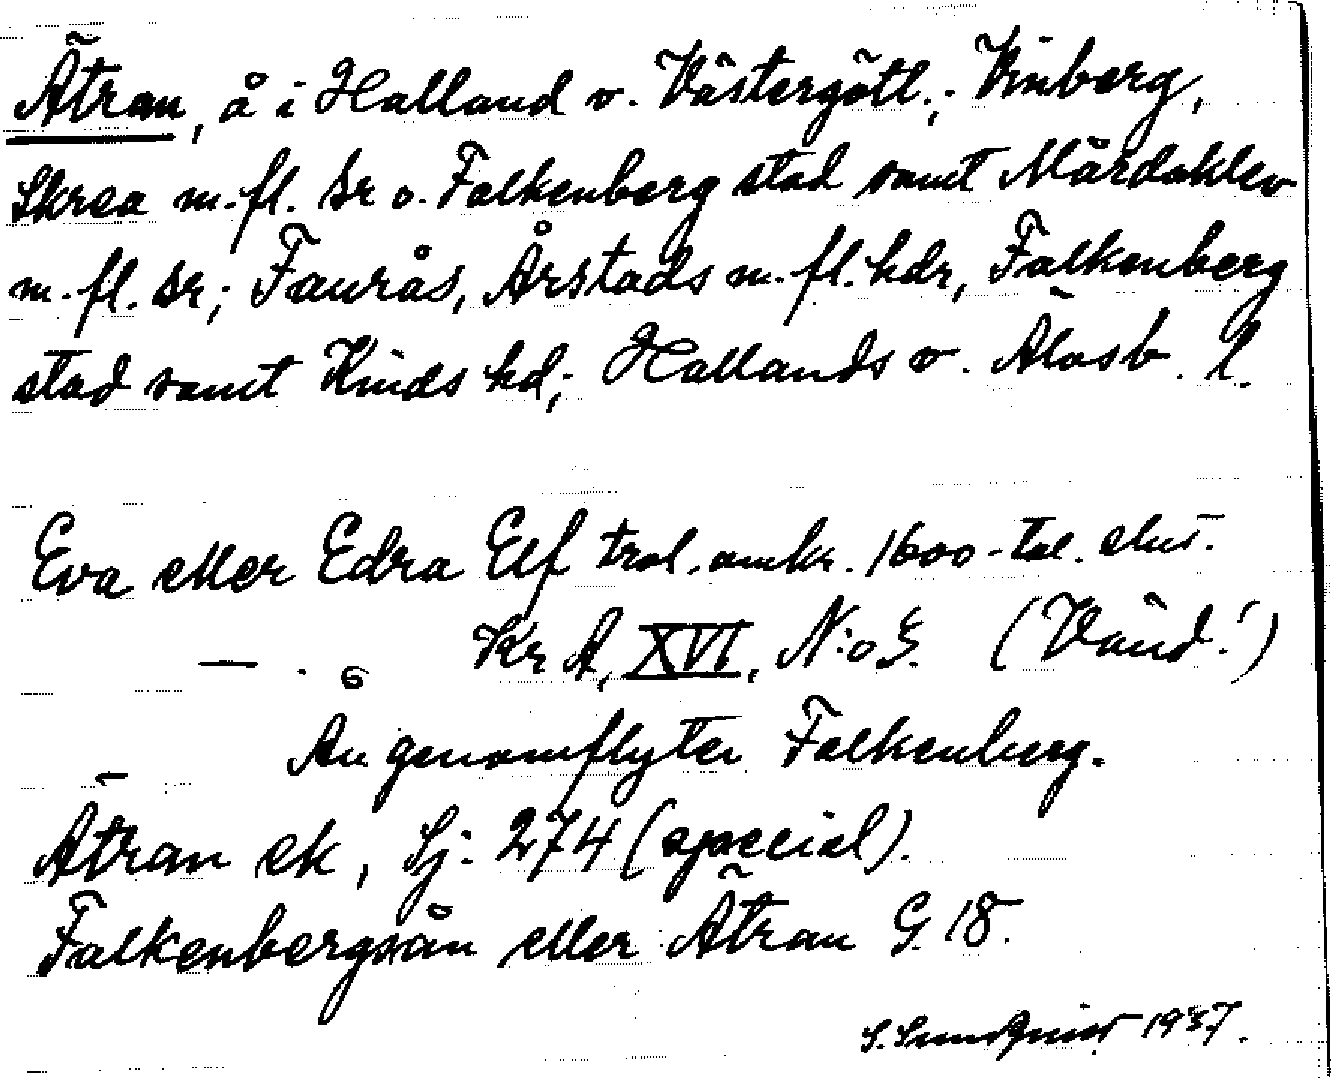 Ätran, å i Halland o. Västergötl.; Vinberg,
Skrea m.fl. sr o. Falkenberg stad samt Mårdaklev
m.fl. sr; Faurås, Årstads m.fl. hdr, Falkenberg
stad samt Kinds hd; Hallands o. Älvsb. l.
Eva eller Edra Elf trol. omkr. 1600-tal. slut.
— . 6 Kr A, XVI, N:o 5. (Vänd!)
Ån genomflyter Falkenberg.
Ätran ek, Sj. 274 (special).
Falkenbergsån eller Ätran G. 18.
S. Sundquist 1937.